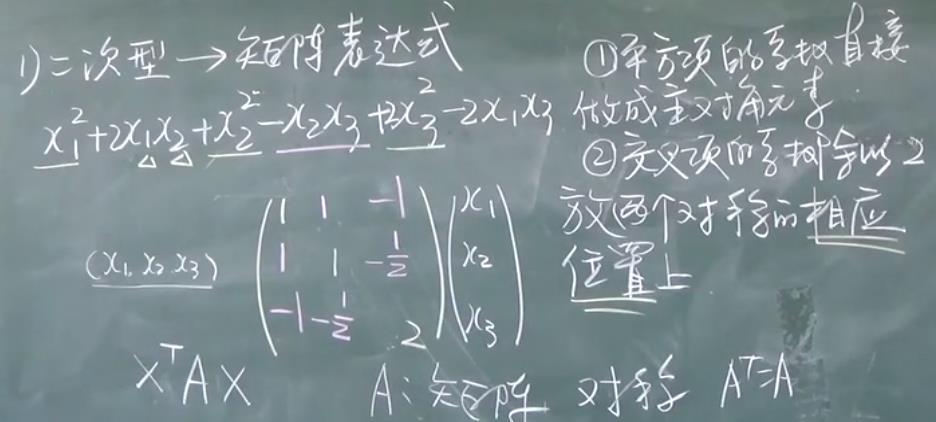 1)二次型→矩阵表达式
x₁²+2x₁x₂+x₂²-x₂x₃+2x₃²-2x₁x₃
(x₁, x₂, x₃) ( 1 1 -1 ) ( x₁ )
( 1 1 -1/2 ) ( x₂ )
( -1 -1/2 2 ) ( x₃ )
XᵀAX A:矩阵 对称 Aᵀ=A
①平方项的系数直接
做成主对角元素.
②交叉项的系数除以2
放两个对称的相应
位置上.